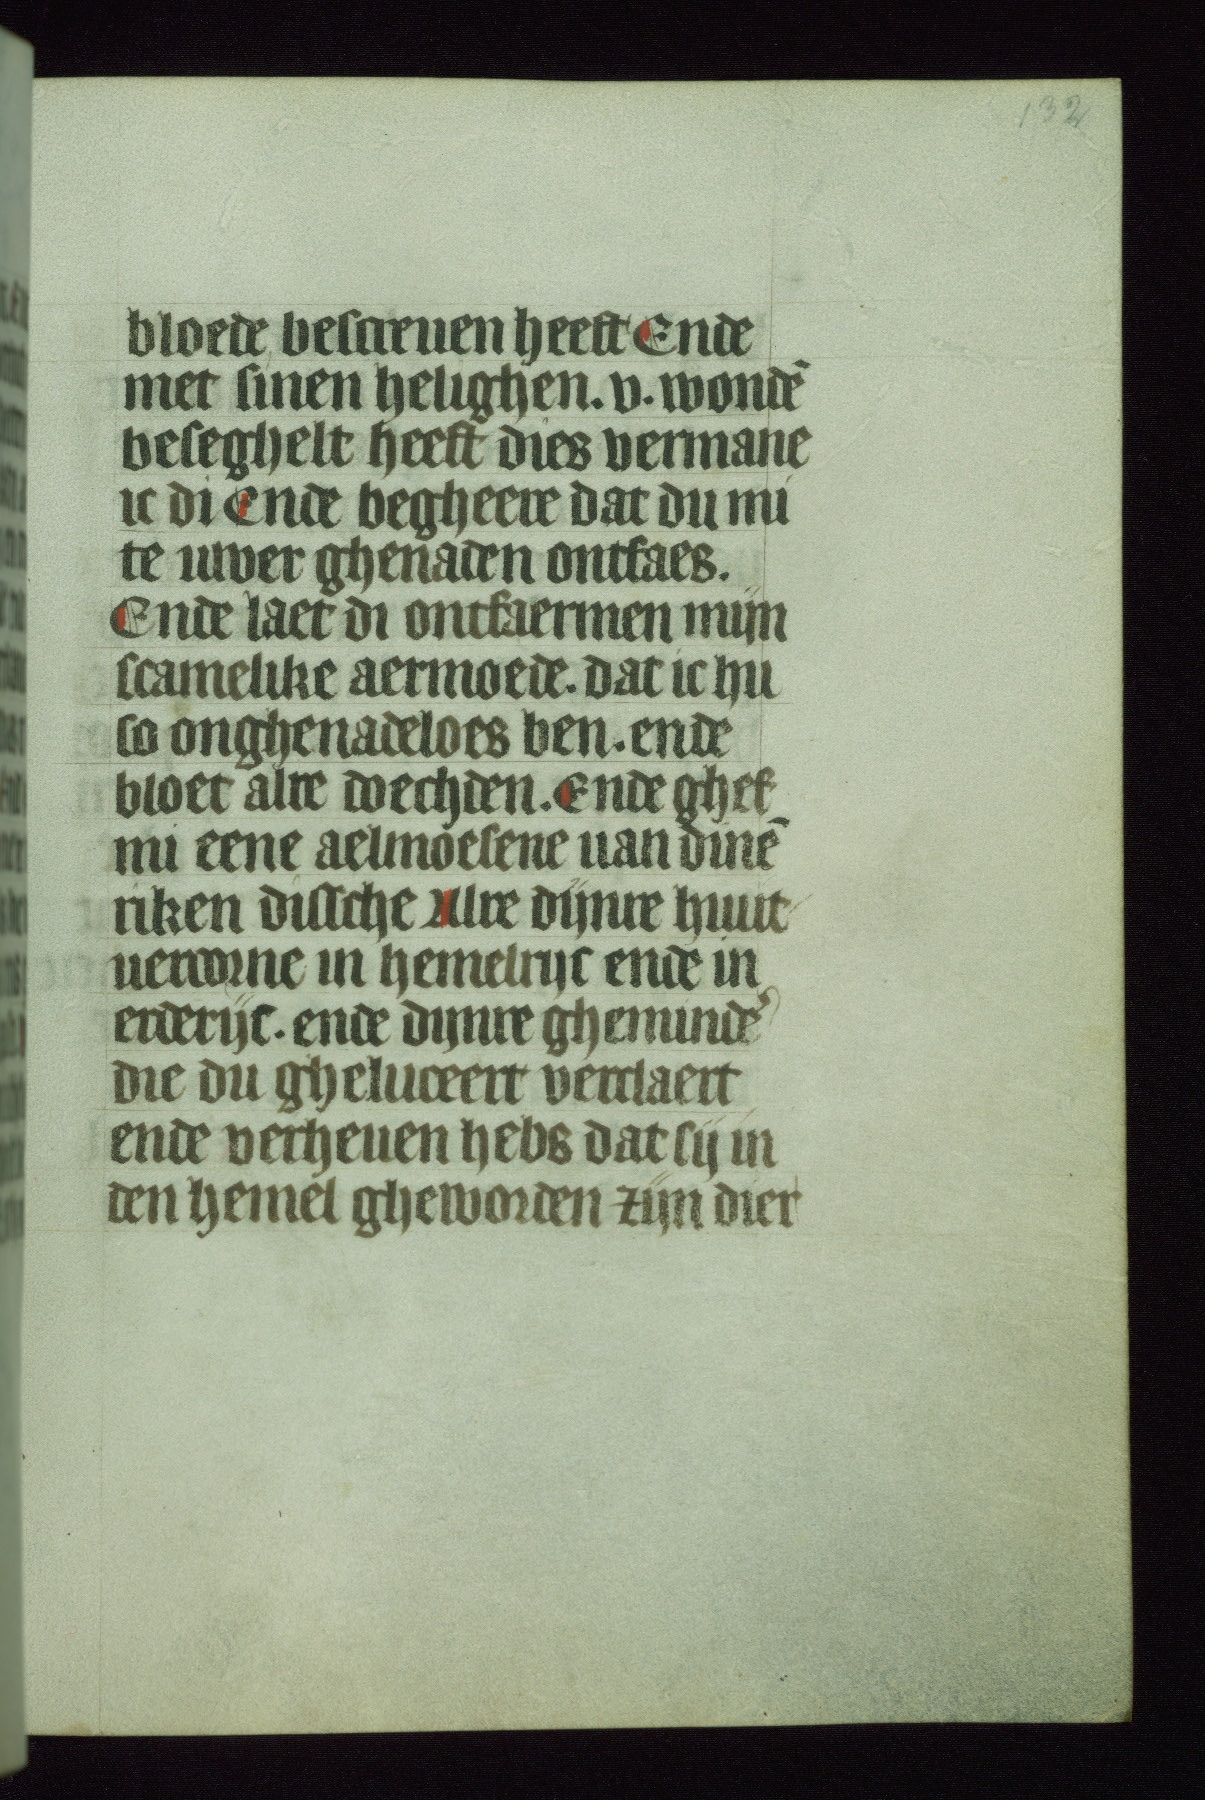 132
bloede bescreuen heeft Ende
met sinen helighen. v. wondē
beseghelt heeft dies vermane
ic di Ende begheere dat du mi
te uwer ghenaden ontfaes.
Ende laet di ontfaermen mijn
scamelike aermoede. dat ic hu
so onghenadeloes ben. ende
bloet alre doechden. Ende ghef
mi eene aelmoesene uan dinē
riken dissche Alre dijnre huut
uercorne in hemelrijc ende in
erderijc. ende dijnre ghemindē
die du gheluceert verclaert
ende verheuen hebs dat sij in
den hemel gheworden zijn dier